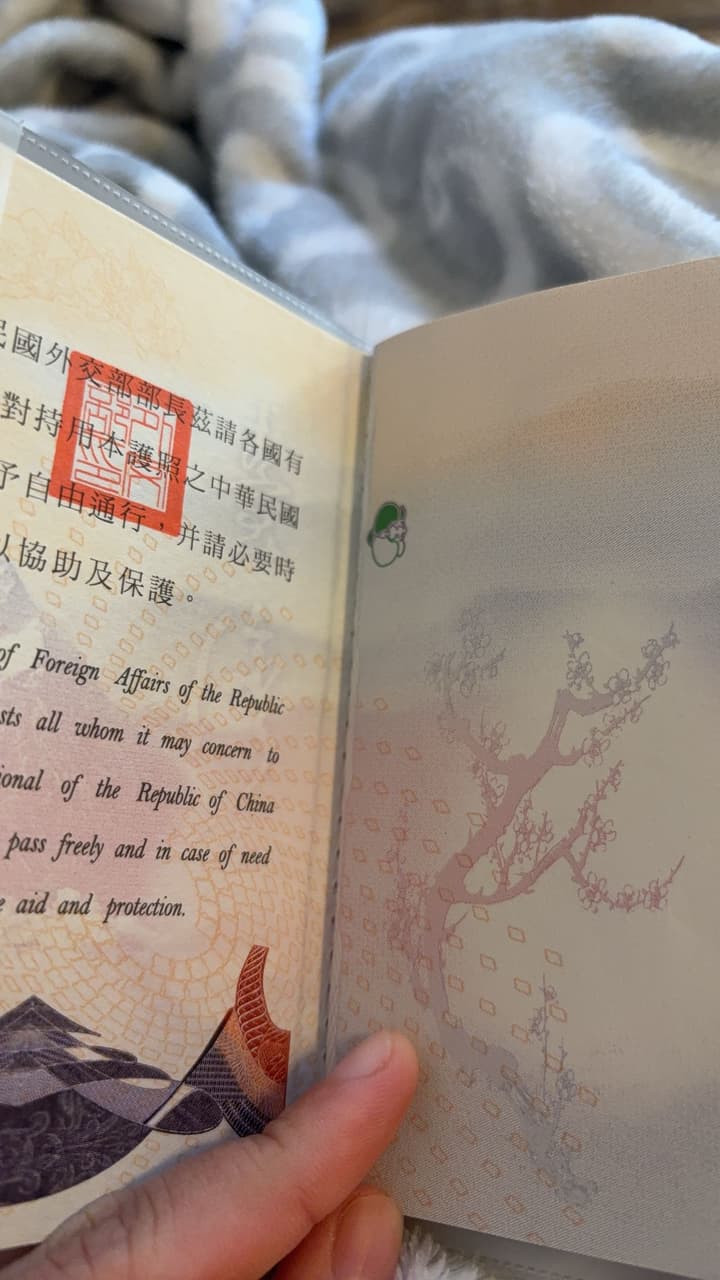 民國外交部部長茲請各國有
對持用本護照之中華民國
予自由通行，并請必要時
以協助及保護。
of Foreign Affairs of the Republic
sts all whom it may concern to
ional of the Republic of China
pass freely and in case of need
e aid and protection.